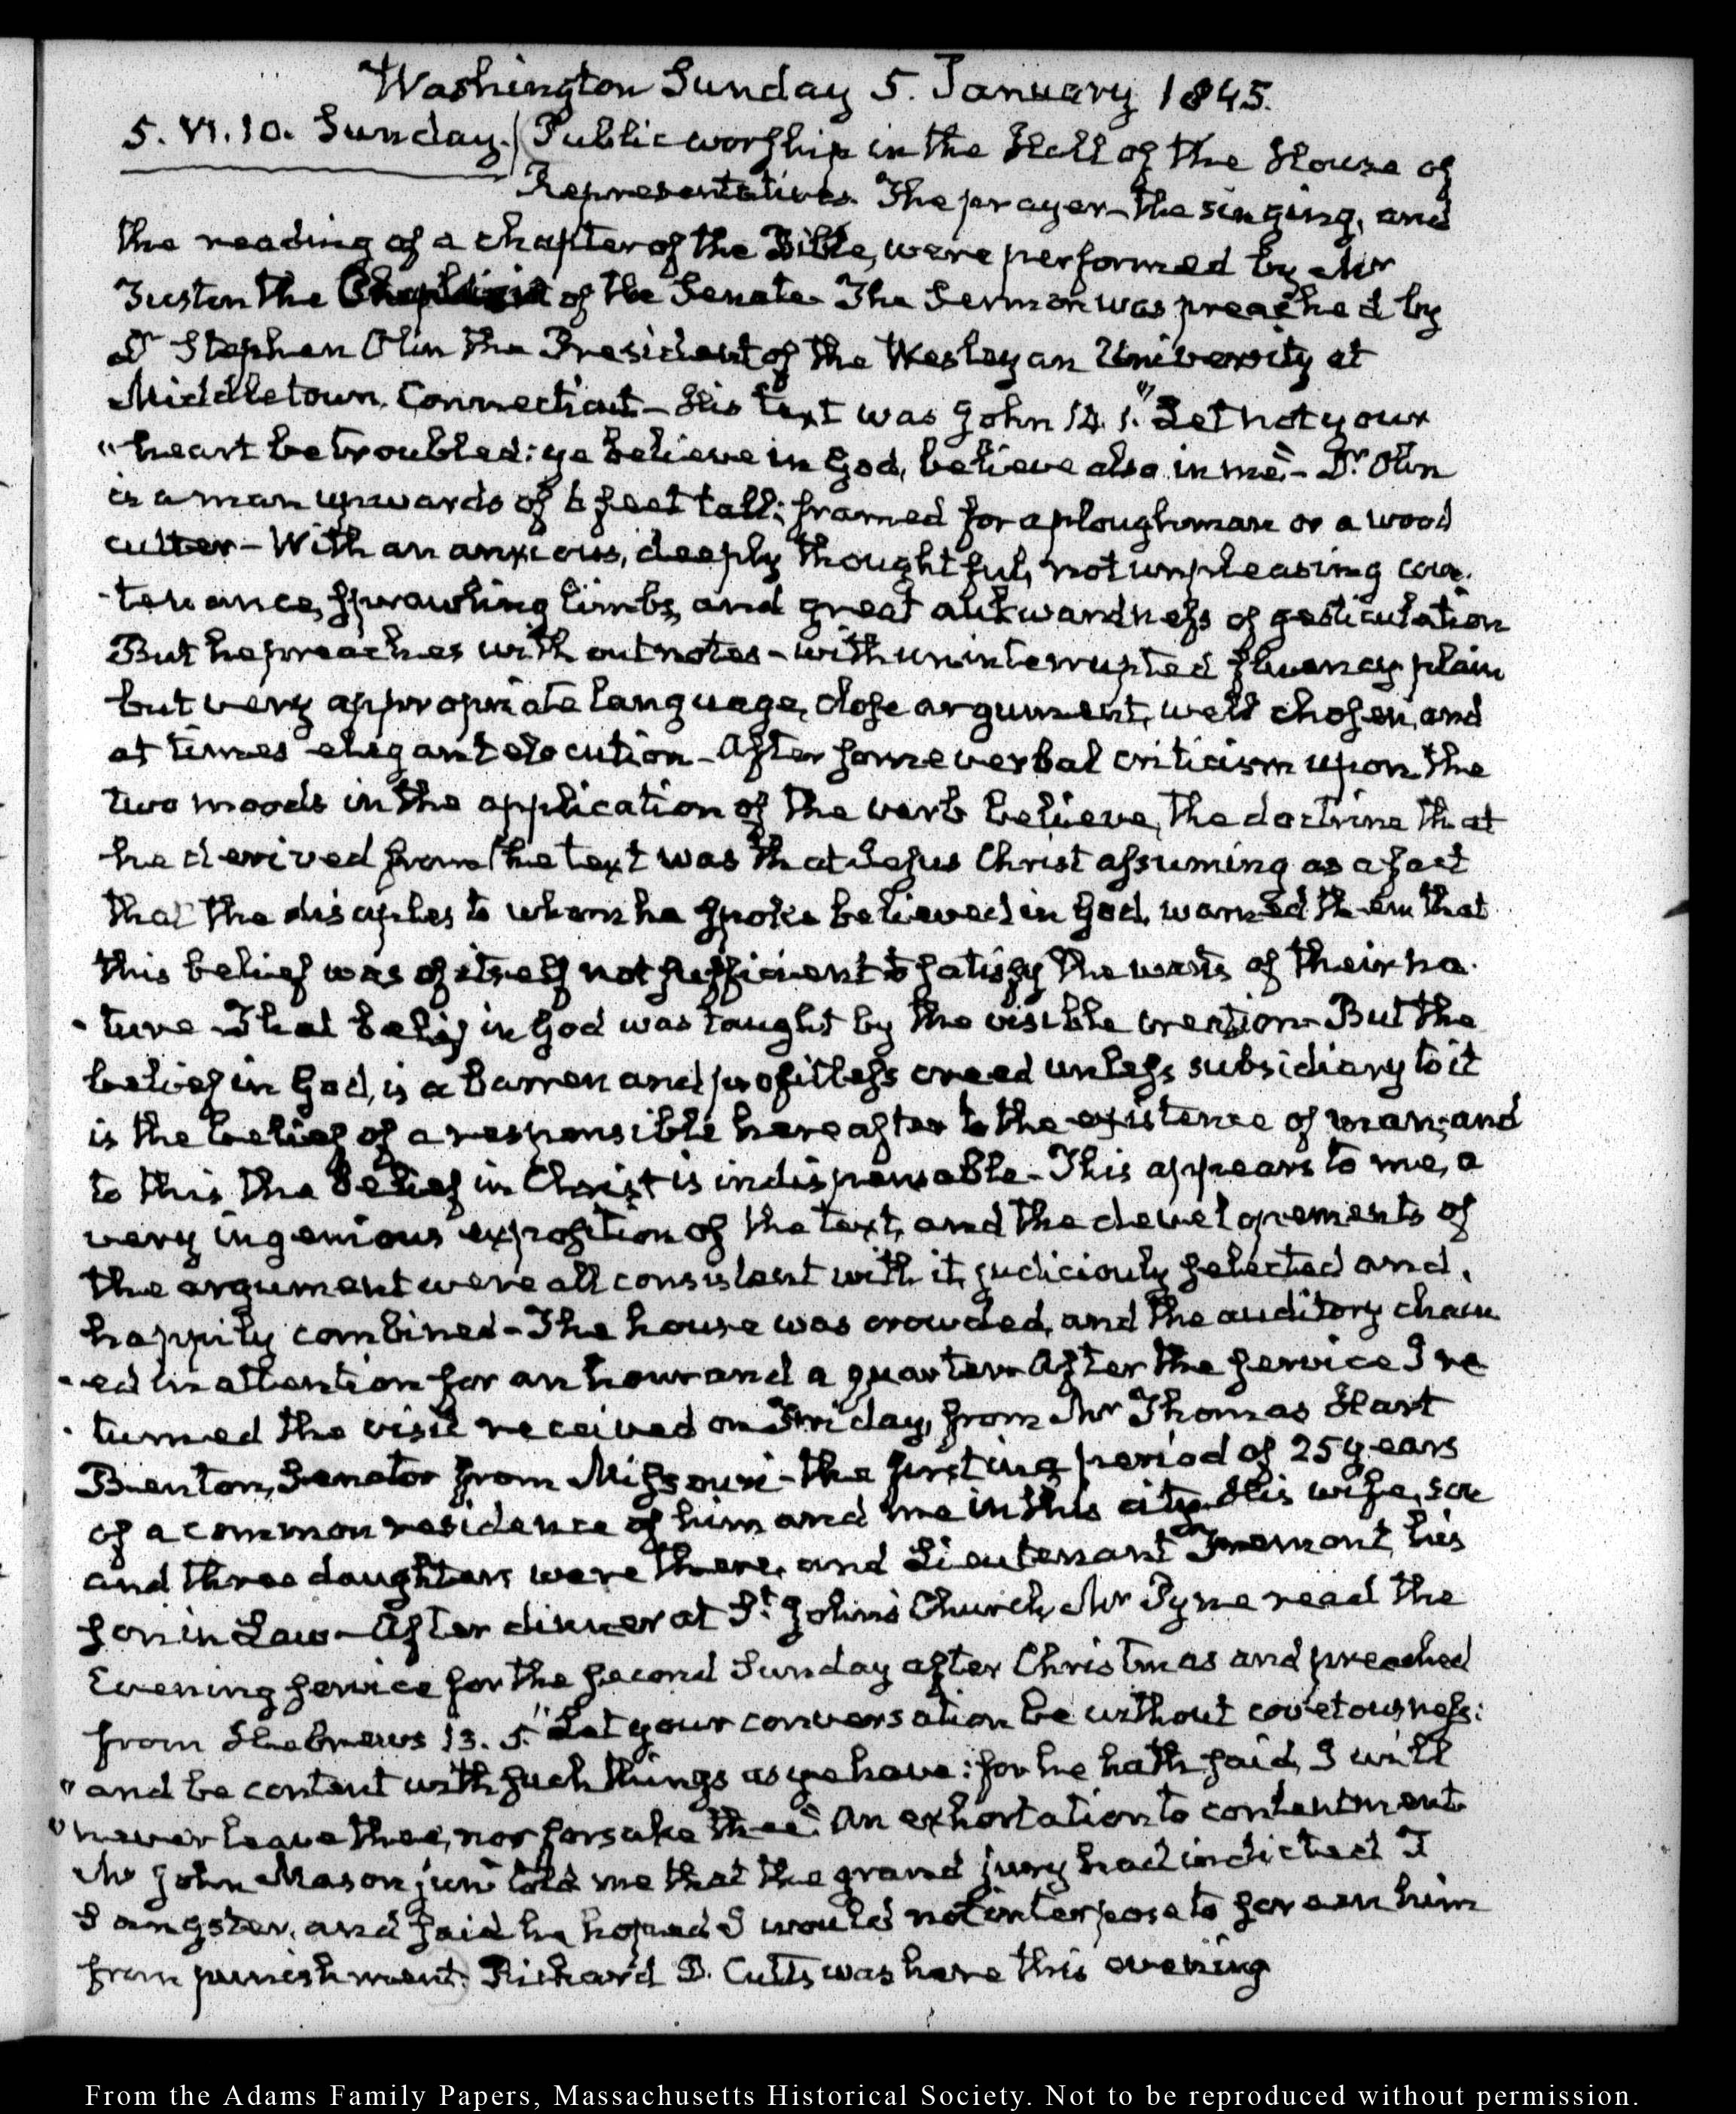 Washington Sunday 5. January 1845.
5. VI.10. Sunday. Public worship in the Hall of the House of
Representatives. The prayer, the singing, and
the reading of a chapter of the Bible, were performed by Mr
Tuston the Chaplain of the Senate. The Sermon was preached by
Dr Stephen Olin the President of the Wesleyan University at
Middletown, Connecticut — His text was John 14. 1. "Let not your
"heart be troubled: ye believe in God, believe also in me" — Dr. Olin
is a man upwards of 6 feet tall; framed for a ploughman or a wood
cutter — With an anxious, deeply thoughtful, not unpleasing coun-
-tenance, sprawling limbs, and great aukwardness of gesticulation
But he preaches without notes — with uninterrupted fluency plain
but very appropriate language, close argument, well chosen, and
at times elegant elocution — After some verbal criticism upon the
two moods in the application of the verb believe, the doctrine that
he derived from the text was that Jesus Christ assuming as a fact
that the disciples to whom he spoke believed in God, warned them that
this belief was of itself not sufficient to satisfy the wants of their na-
-ture. That belief in God was taught by the visible creation. But the
belief in God, is a barren and profitless creed unless subsidiary to it
is the belief of a responsible hereafter to the existence of man; and
to this the belief in Christ is indispensable — This appears to me, a
very ingenious exposition of the text, and the developements of
the argument were all consistent with it, judiciously selected and,
happily combined — The house was crowded, and the auditory chain
-ed in attention for an hour and a quarter. After the service I re
-turned the visit received on Friday, from Mr Thomas Hart
Benton, Senator from Missouri — the first in a period of 25 years
of a common residence of him and me in this city. His wife, son
and three daughters were there, and Lieutenant Fremont, his
son in Law — After dinner at St. John's Church, Mr Pyne read the
Evening service for the second Sunday after Christmas and preached
from Hebrews 13. 5. "Let your conversation be without covetousness:
"and be content with such things as ye have: for he hath said, I will
"never leave thee, nor forsake thee." An exhortation to contentment
Mr John Mason junr told me that the grand jury had indicted T
Sangster, and said he hoped I would not interpose to screen him
from punishment. Richard D. Cutts was here this evening
From the Adams Family Papers, Massachusetts Historical Society. Not to be reproduced without permission.